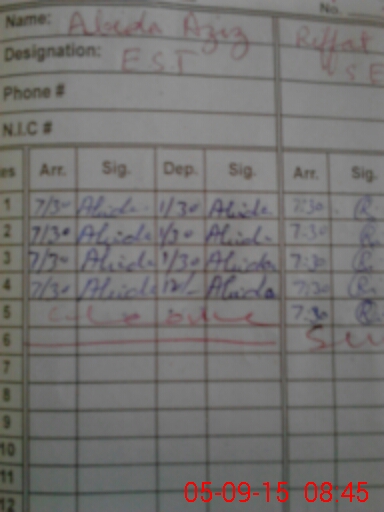 No.
Name: Abida Aziz Riffat
Designation: EST SE
Phone #
N.I.C #
es Arr. Sig. Dep. Sig. Arr. Sig.
1 7/30 Abida 1/30 Abida 7:30 R.
2 7/30 Abida 1/30 Abida 7:30 R.
3 7/30 Abida 1/30 Abida 7:30 R.
4 7/30 Abida 12/- Abida 7:30 R.
5 7:30 R.
6
7
8
9
10
11
12
05-09-15 08:45